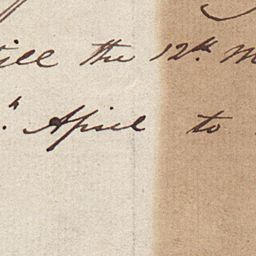 till the 12th M
" April to